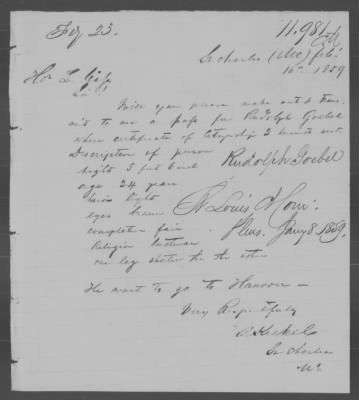 Fey 23.
11.981
St Charles (Mo) Feb.
10th 1859
Hon L. Cass
Sir:
Will you please make out & trans-
mit to me a pass for Rudolph Goebel
whose certificate of citizenship I herewith send.
Description of person
hight 5 feet 6 inch
Rudolph Goebel
age 24 years
hair light
St Louis Ct Com:
eyes brown
complexion fair
Jany 8 1859.
Religion Lutheran
one leg shorter than the other
He want to go to Hanover —
Very Respectfully
St Charles
Mo